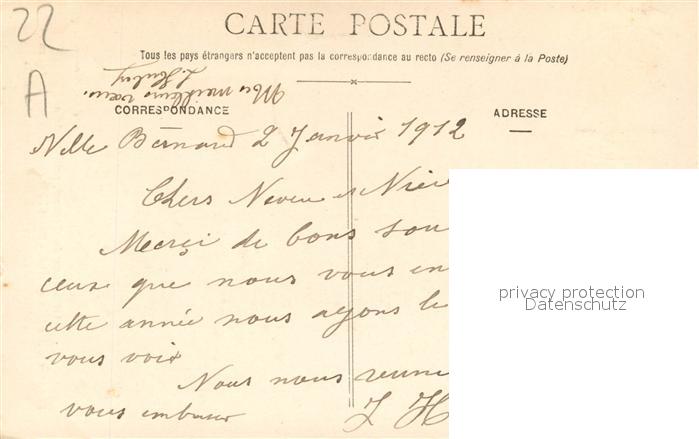 22
A
CARTE POSTALE
Tous les pays étrangers n'acceptent pas la correspondance au recto (Se renseigner à la Poste)
Mes meilleurs vœux.
CORRESPONDANCE
ADRESSE
Bernard 2 Janvier 1912
Chers Neveu et Niè
Merçi de bons sou
ceux que nous vous en
cette année nous ayons le
vous voir
Nous nous reuni
vous embrasser
L H
privacy protection
Datenschutz